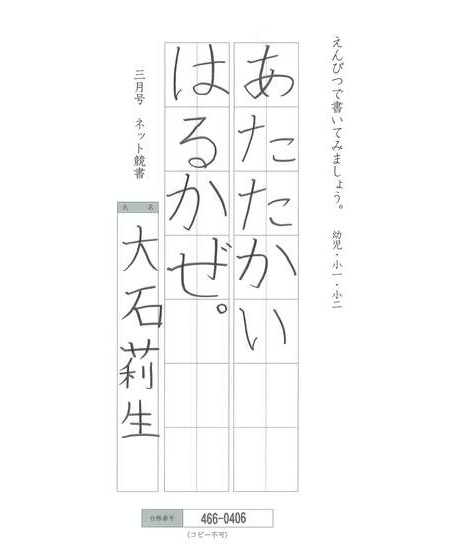 えんぴつで書いてみましょう。 幼児・小一・小二
あたたかい
はるかぜ。
三月号 ネット競書
氏名
大石莉生
台帳番号 466-0406
(コピー不可)